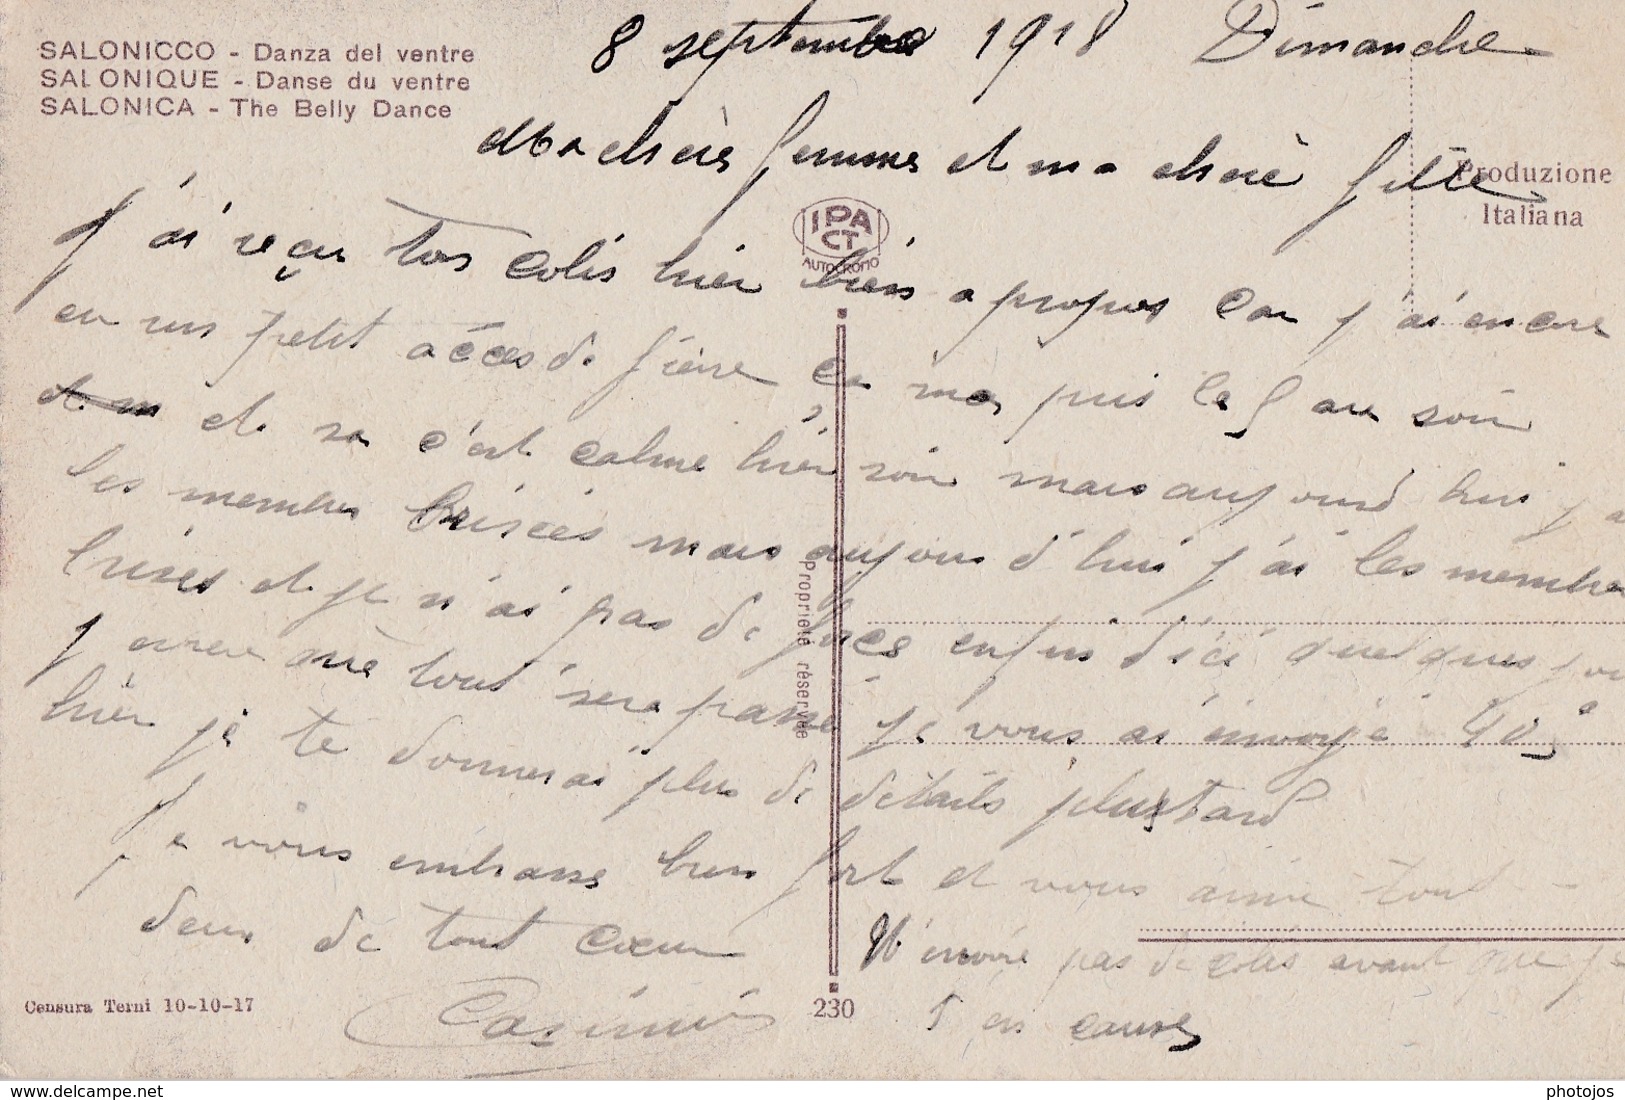 SALONICCO - Danza del ventre
SALONIQUE - Danse du ventre
SALONICA - The Belly Dance
8 septembre 1918 Dimanche
Ma chère femme et ma chère fille
Produzione
Italiana
IPA
CT
AUTOCROMO
J'ai reçu ton colis hier bien a propos car j'ai encore
eu un petit accès de fièvre puis le au soir
et sa c'est calmé hier soir mais aujourd hui j
les membres brisées mais aujourd'hui j'ai les membres
brisés et je n'ai pas de force enfin d'ici quelques
tout sera passé je vous ai envoyé 40
hier je te donnerai plus de détails plustard
Je vous embrasse bien fort et vous aime tout
deux de tout cœur
Casimir
N'envoie pas de colis avant que je
t en cause
Propriété réservée
Censura Terni 10-10-17
230
www.delcampe.net
photojos